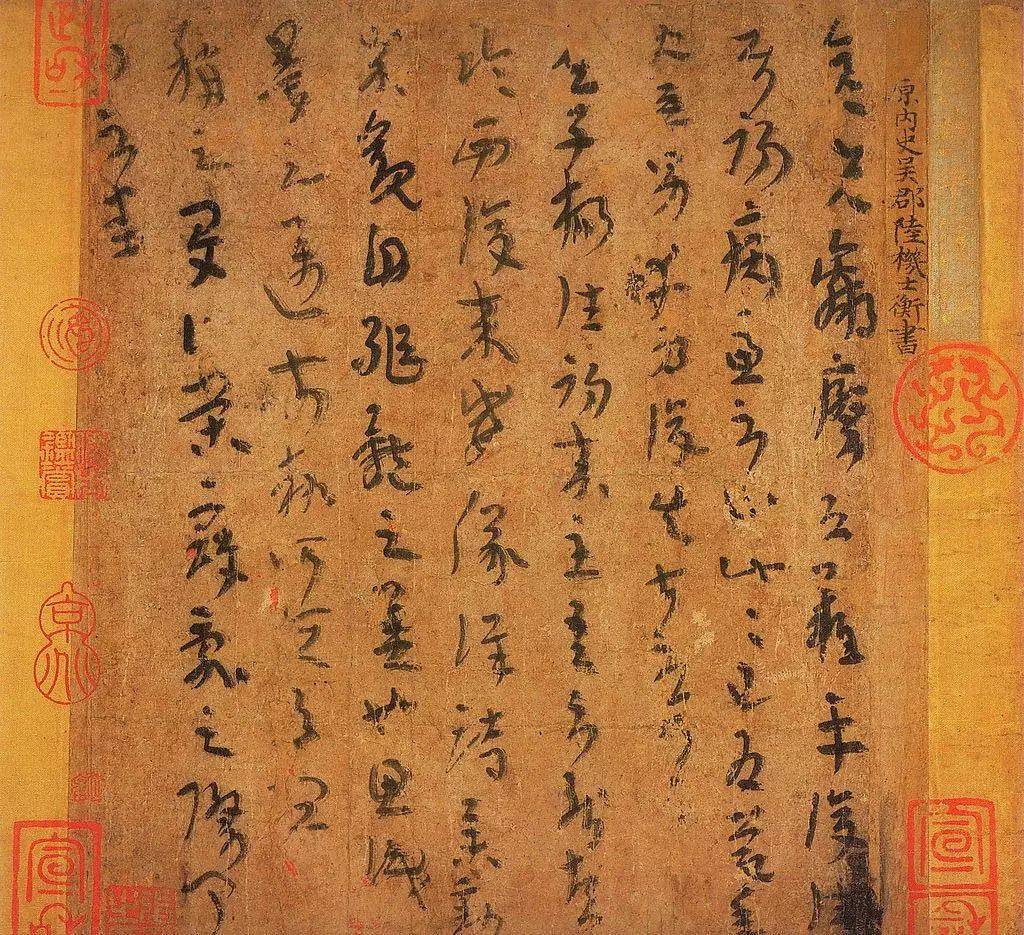 原內史吳郡陸機士衡書
彥先羸瘵恐難平復往
屬初病慮不止此此已為慶承
使唯男幸為復失前憂耳
吳子楊往初來主吾不能盡
臨西復來威儀詳跱舉動
成觀自軀體之美也思識
量之邁前勢所恒有宜
稱之夏伯榮寇亂之際聞
問不悉
政和
宣和
宣和